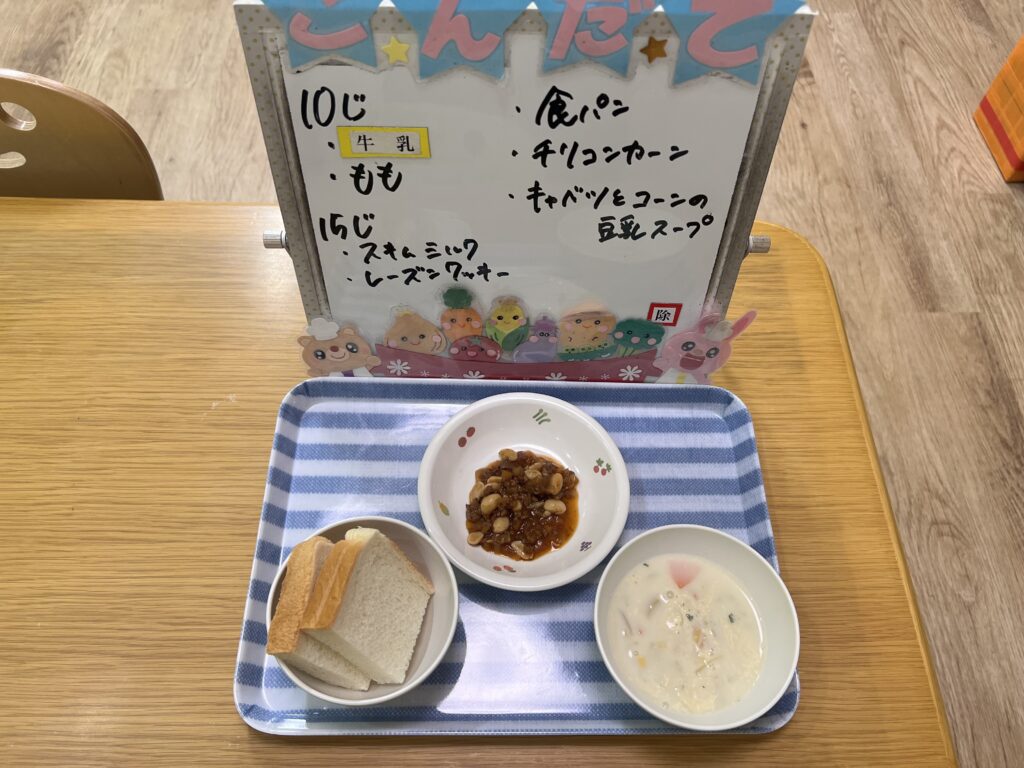 こんだて
10じ
・牛乳
・もも
15じ
・スキムミルク
・レーズンクッキー
・食パン
・チリコンカーン
・キャベツとコーンの
豆乳スープ
除